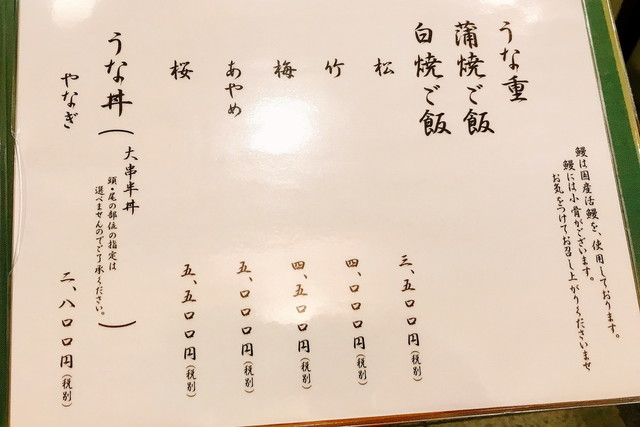 鰻は国産活鰻を、使用しております。
鰻には小骨がございます。
お気をつけてお召し上がりくださいませ
うな重
蒲焼ご飯
白焼ご飯
松 三、五〇〇円(税別)
竹 四、〇〇〇円(税別)
梅 四、五〇〇円(税別)
あやめ 五、〇〇〇円(税別)
桜 五、五〇〇円(税別)
うな丼(大串半丼
頭・尾の部位の指定は
選べませんのでご了承ください。)
やなぎ 二、八〇〇円(税別)